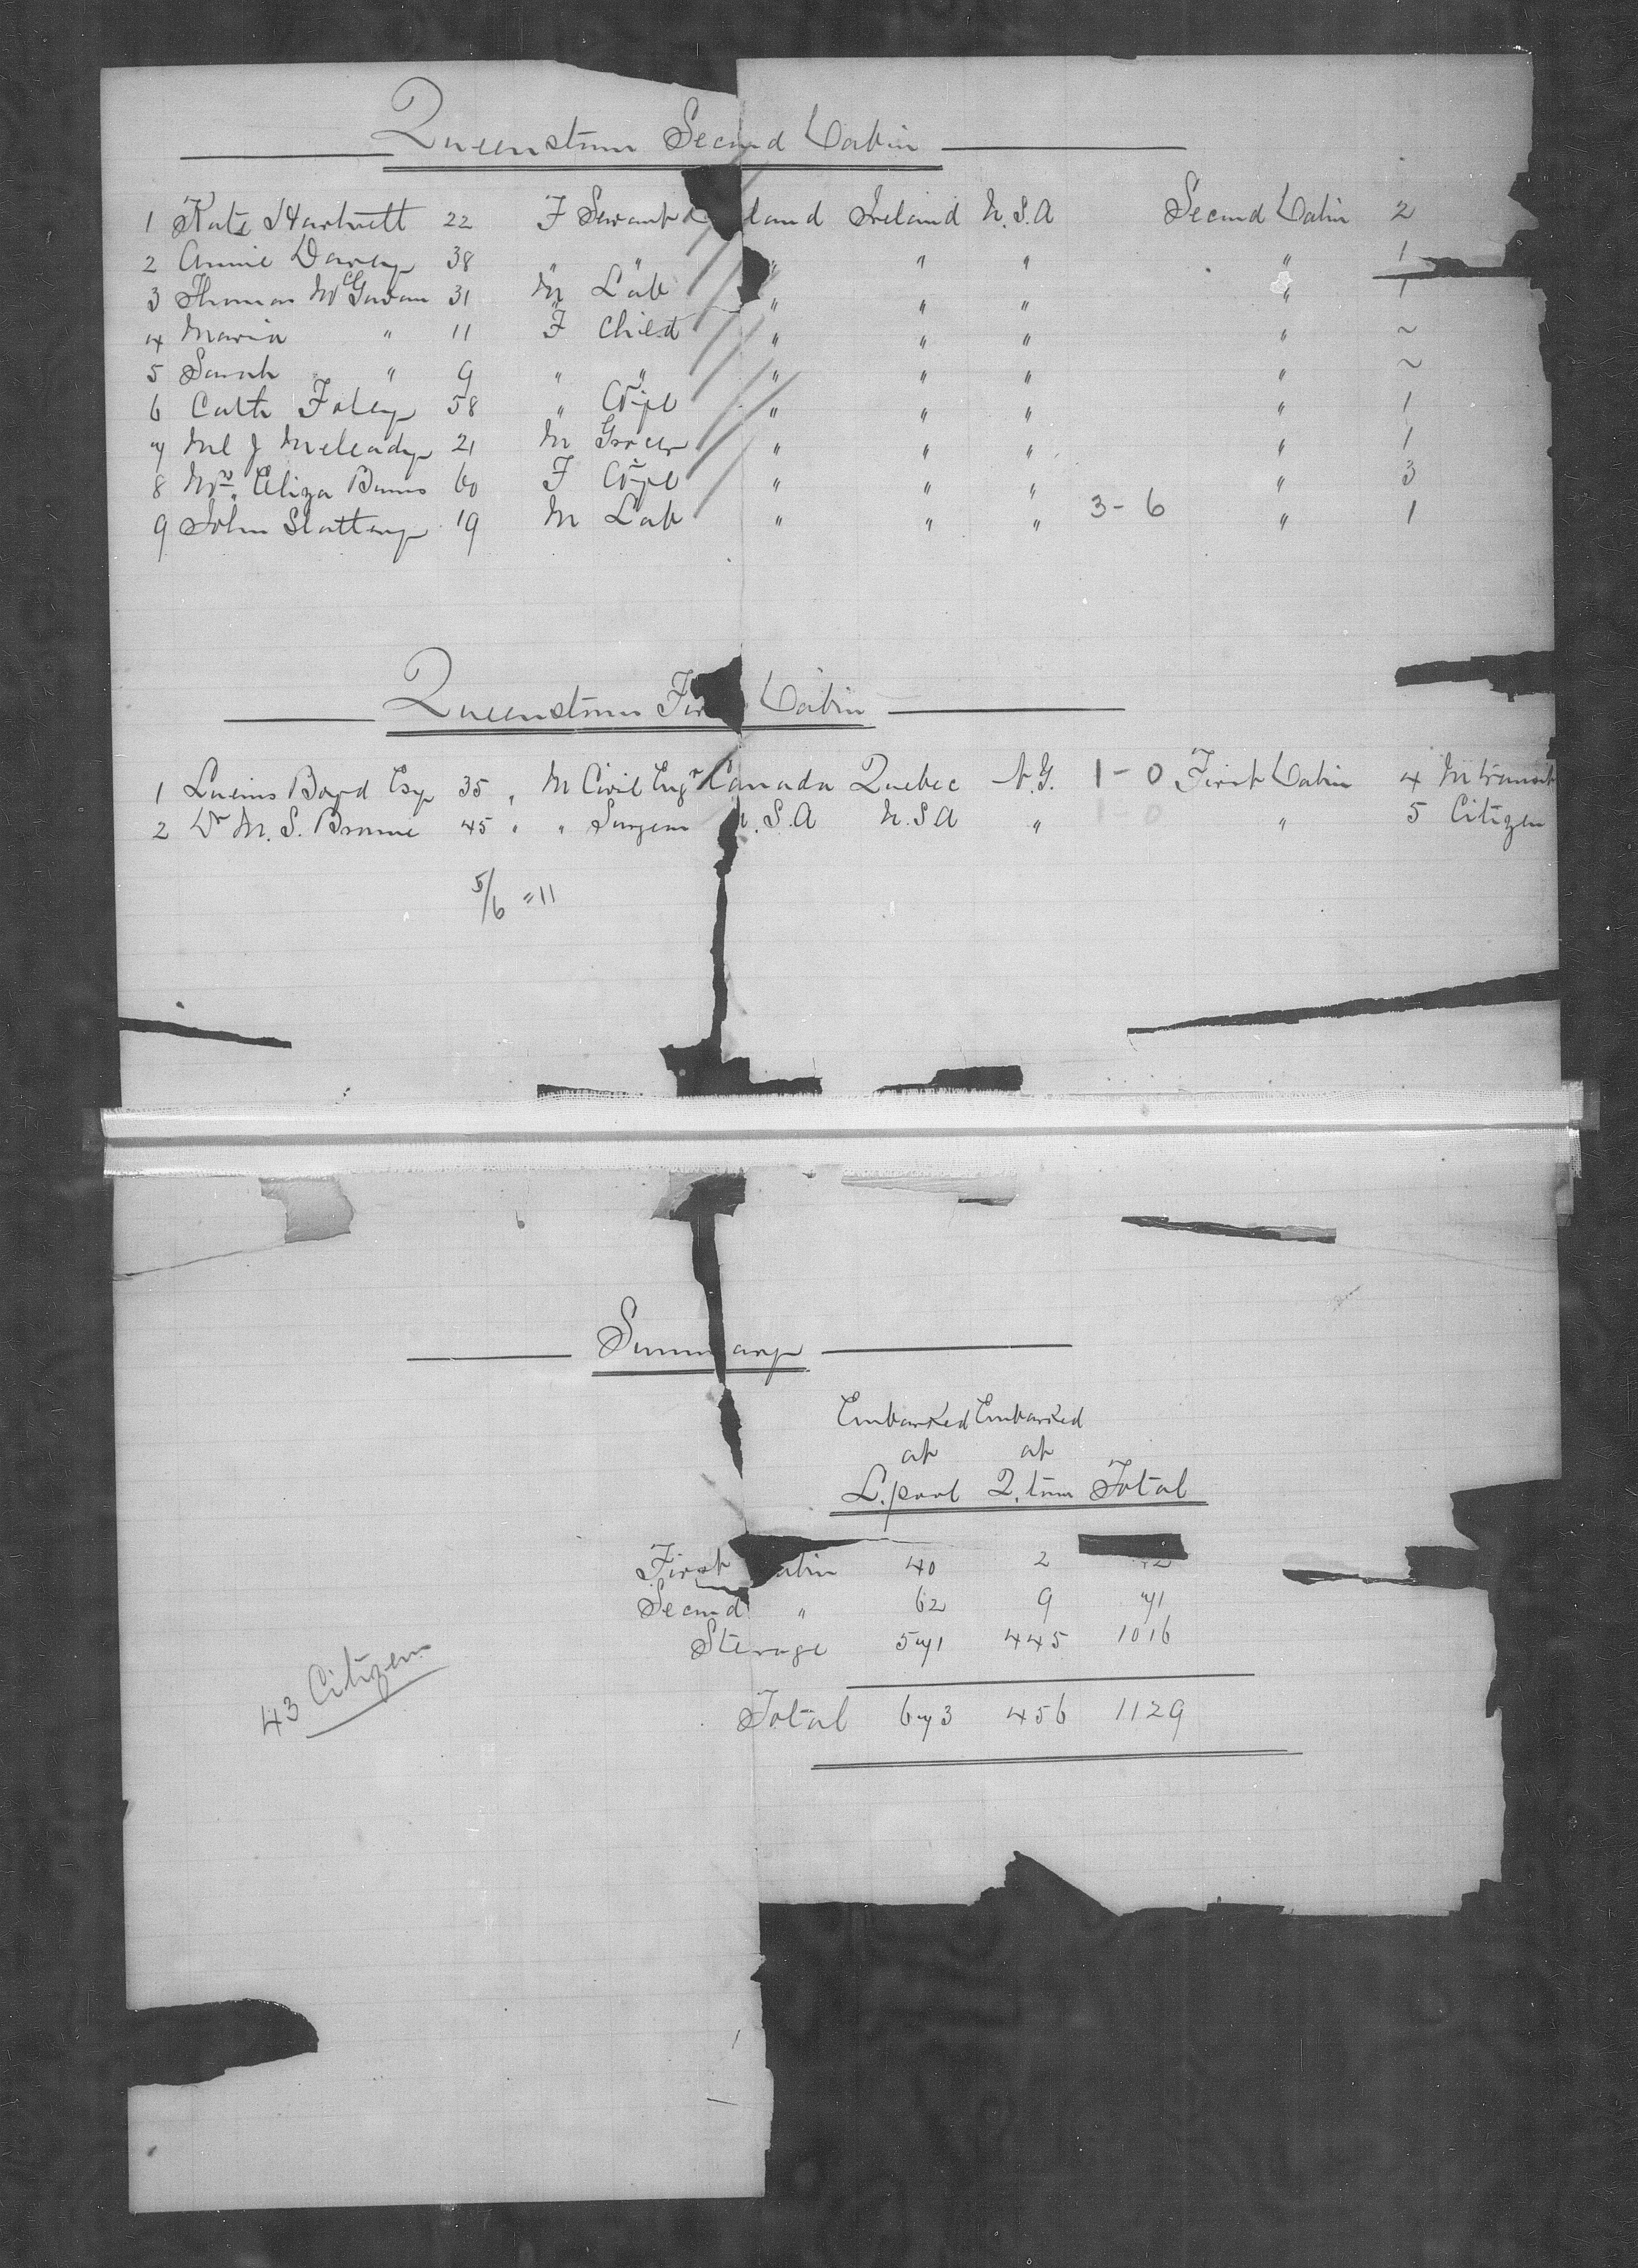 Queenstown Second Cabin
1 Kate Hartnett 22 F Servant land Ireland U.S.A Second Cabin 2
2 Annie Davey 38 " " " " " " 1
3 Thomas McGowan 31 M Lab " " " " 1
4 Maria " 11 F Child " " " " ~
5 Sarah " 9 " " " " " " ~
6 Cath Foley 58 " " " " " 1
7 Ml J Meleady 21 M Grocer " " " " 1
8 Mrs Eliza Burns 60 F " " " " 3
9 John Slattery 19 M Lab " " " 3-6 " 1
Queenstown Fir Cabin
1 Lucius Boyd Esq 35 " M Civil Engr Canada Quebec N.Y. 1-0 First Cabin 4 Intransit
2 Dr M. S. Browne 45 " " Surgeon U.S.A U.S.A " 1-0 " 5 Citizen
5/6 = 11
Summary
Embarked Embarked
at at
L.pool Q.town Total
First abin 40 2 42
Second " 62 9 71
Sterage 571 445 1016
43 Citizen
Total 673 456 1129